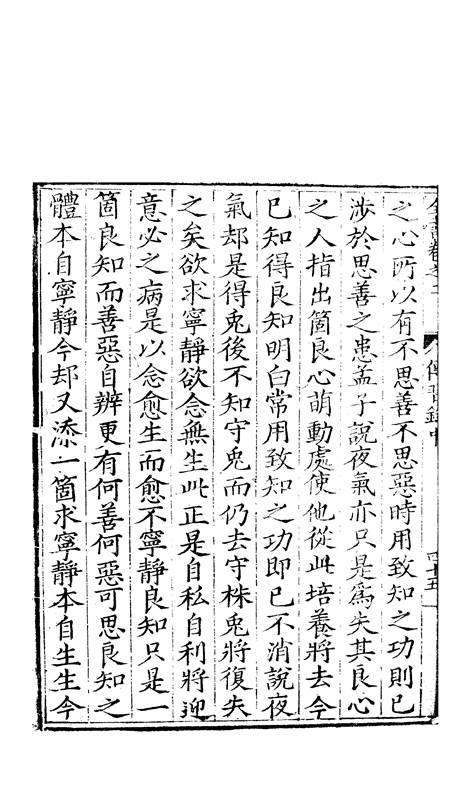 之心所以有不思善不思惡時用致知之功則已
涉於思善之患孟子說夜氣亦只是為失其良心
之人指出箇良心萌動處使他從此培養將去今
已知得良知明白常用致知之功即已不消說夜
氣却是得兎後不知守兎而仍去守株兎將復失
之矣欲求寧靜欲念無生此正是自私自利將迎
意必之病是以念愈生而愈不寧靜良知只是一
箇良知而善惡自辨更有何善何惡可思良知之
體本自寧靜今却又添一箇求寧靜本自生生今